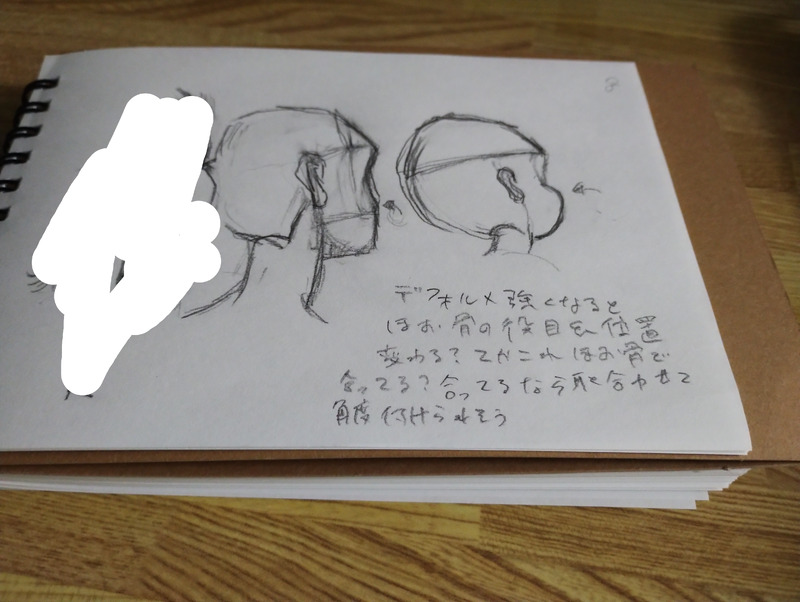 デフォルメ強くなると
ほお骨の役目や位置
変わる?てかこれほお骨で
合ってる?合ってるなら耳と合わせて
角度付けられそう